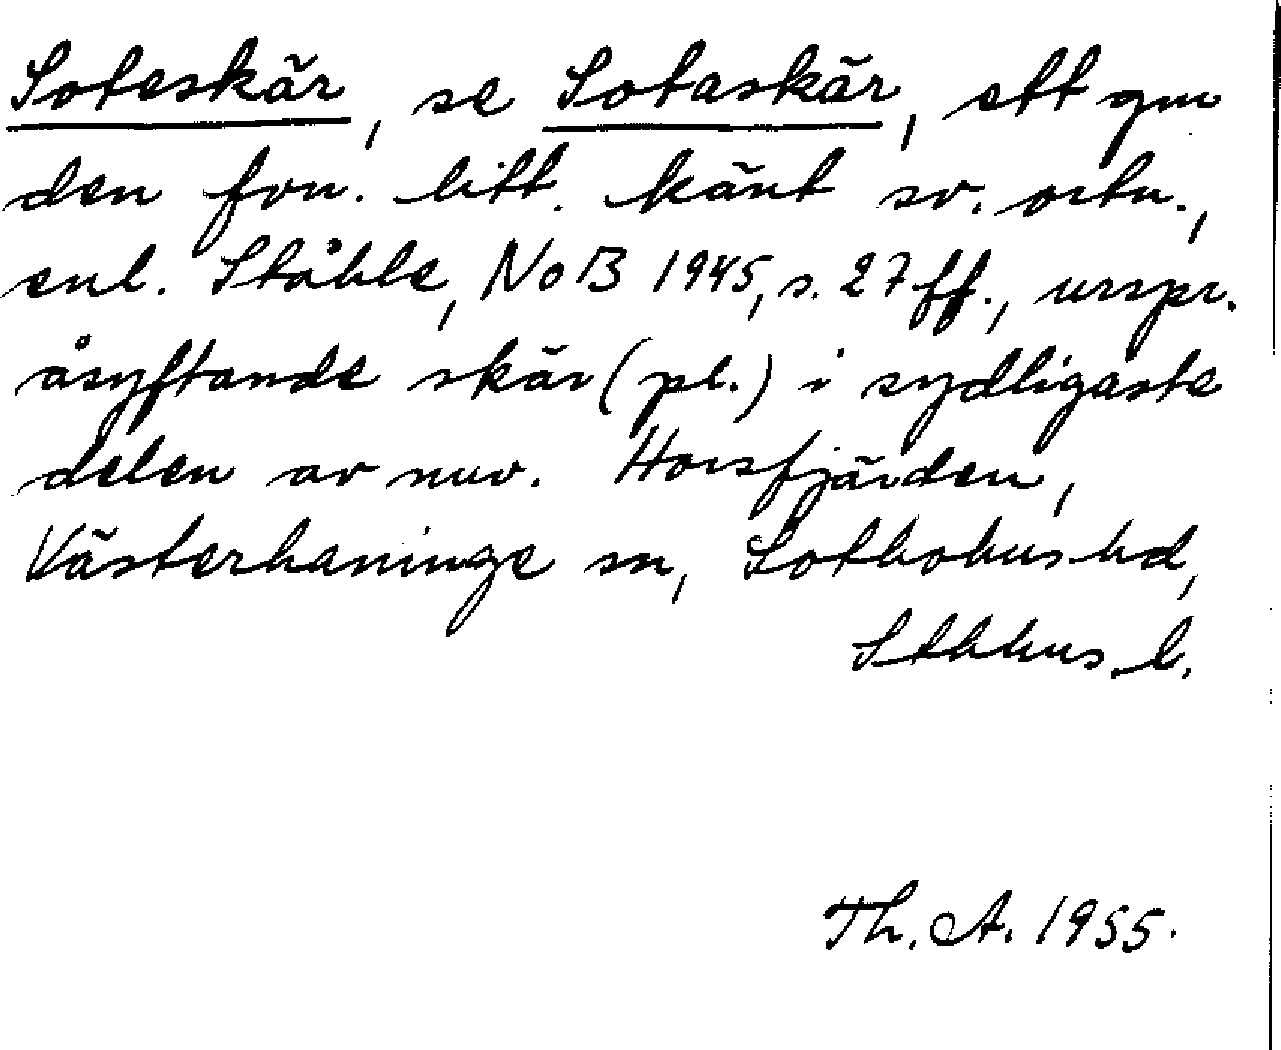 Soteskär, se Sotaskär, ett gm
den fvn. litt. känt sv. ortn.,
enl. Ståhle, NoB 1945, s. 27 ff., urspr.
åsyftande skär (pl.) i sydligaste
delen av nuv. Horsfjärden,
Västerhaninge sn, Sotholms hd,
Sthlms l.
Th. A. 1955.